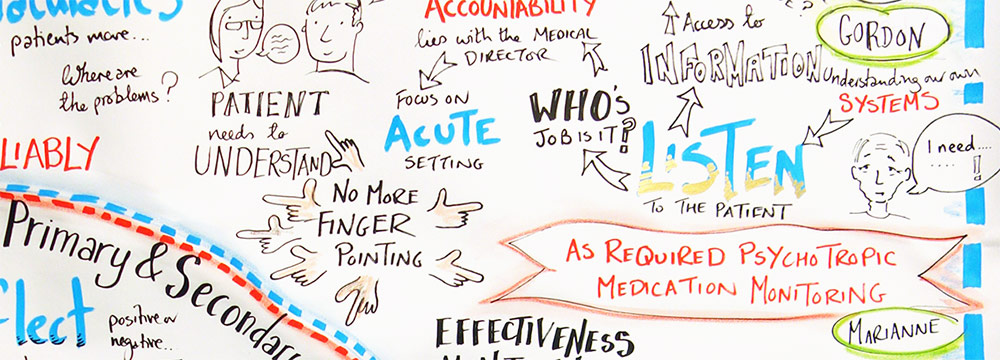 patients move...
Where are
the problems?
PATIENT
needs to
UNDERSTAND
LIABLY
Primary & Secondar
flect
positive or
negative...
ACCOUNTABILITY
lies with the MEDICAL
DIRECTOR
FOCUS ON
ACUTE
SETTING
NO MORE
FINGER
POINTING
WHO'S
JOB IS IT?!
Access to
INFORMATION
LISTEN
TO THE PATIENT
GORDON
Understanding our own
SYSTEMS
I need....
.... !
AS REQUIRED PSYCHOTROPIC
MEDICATION MONITORING
MARIANNE
EFFECTIVENESS